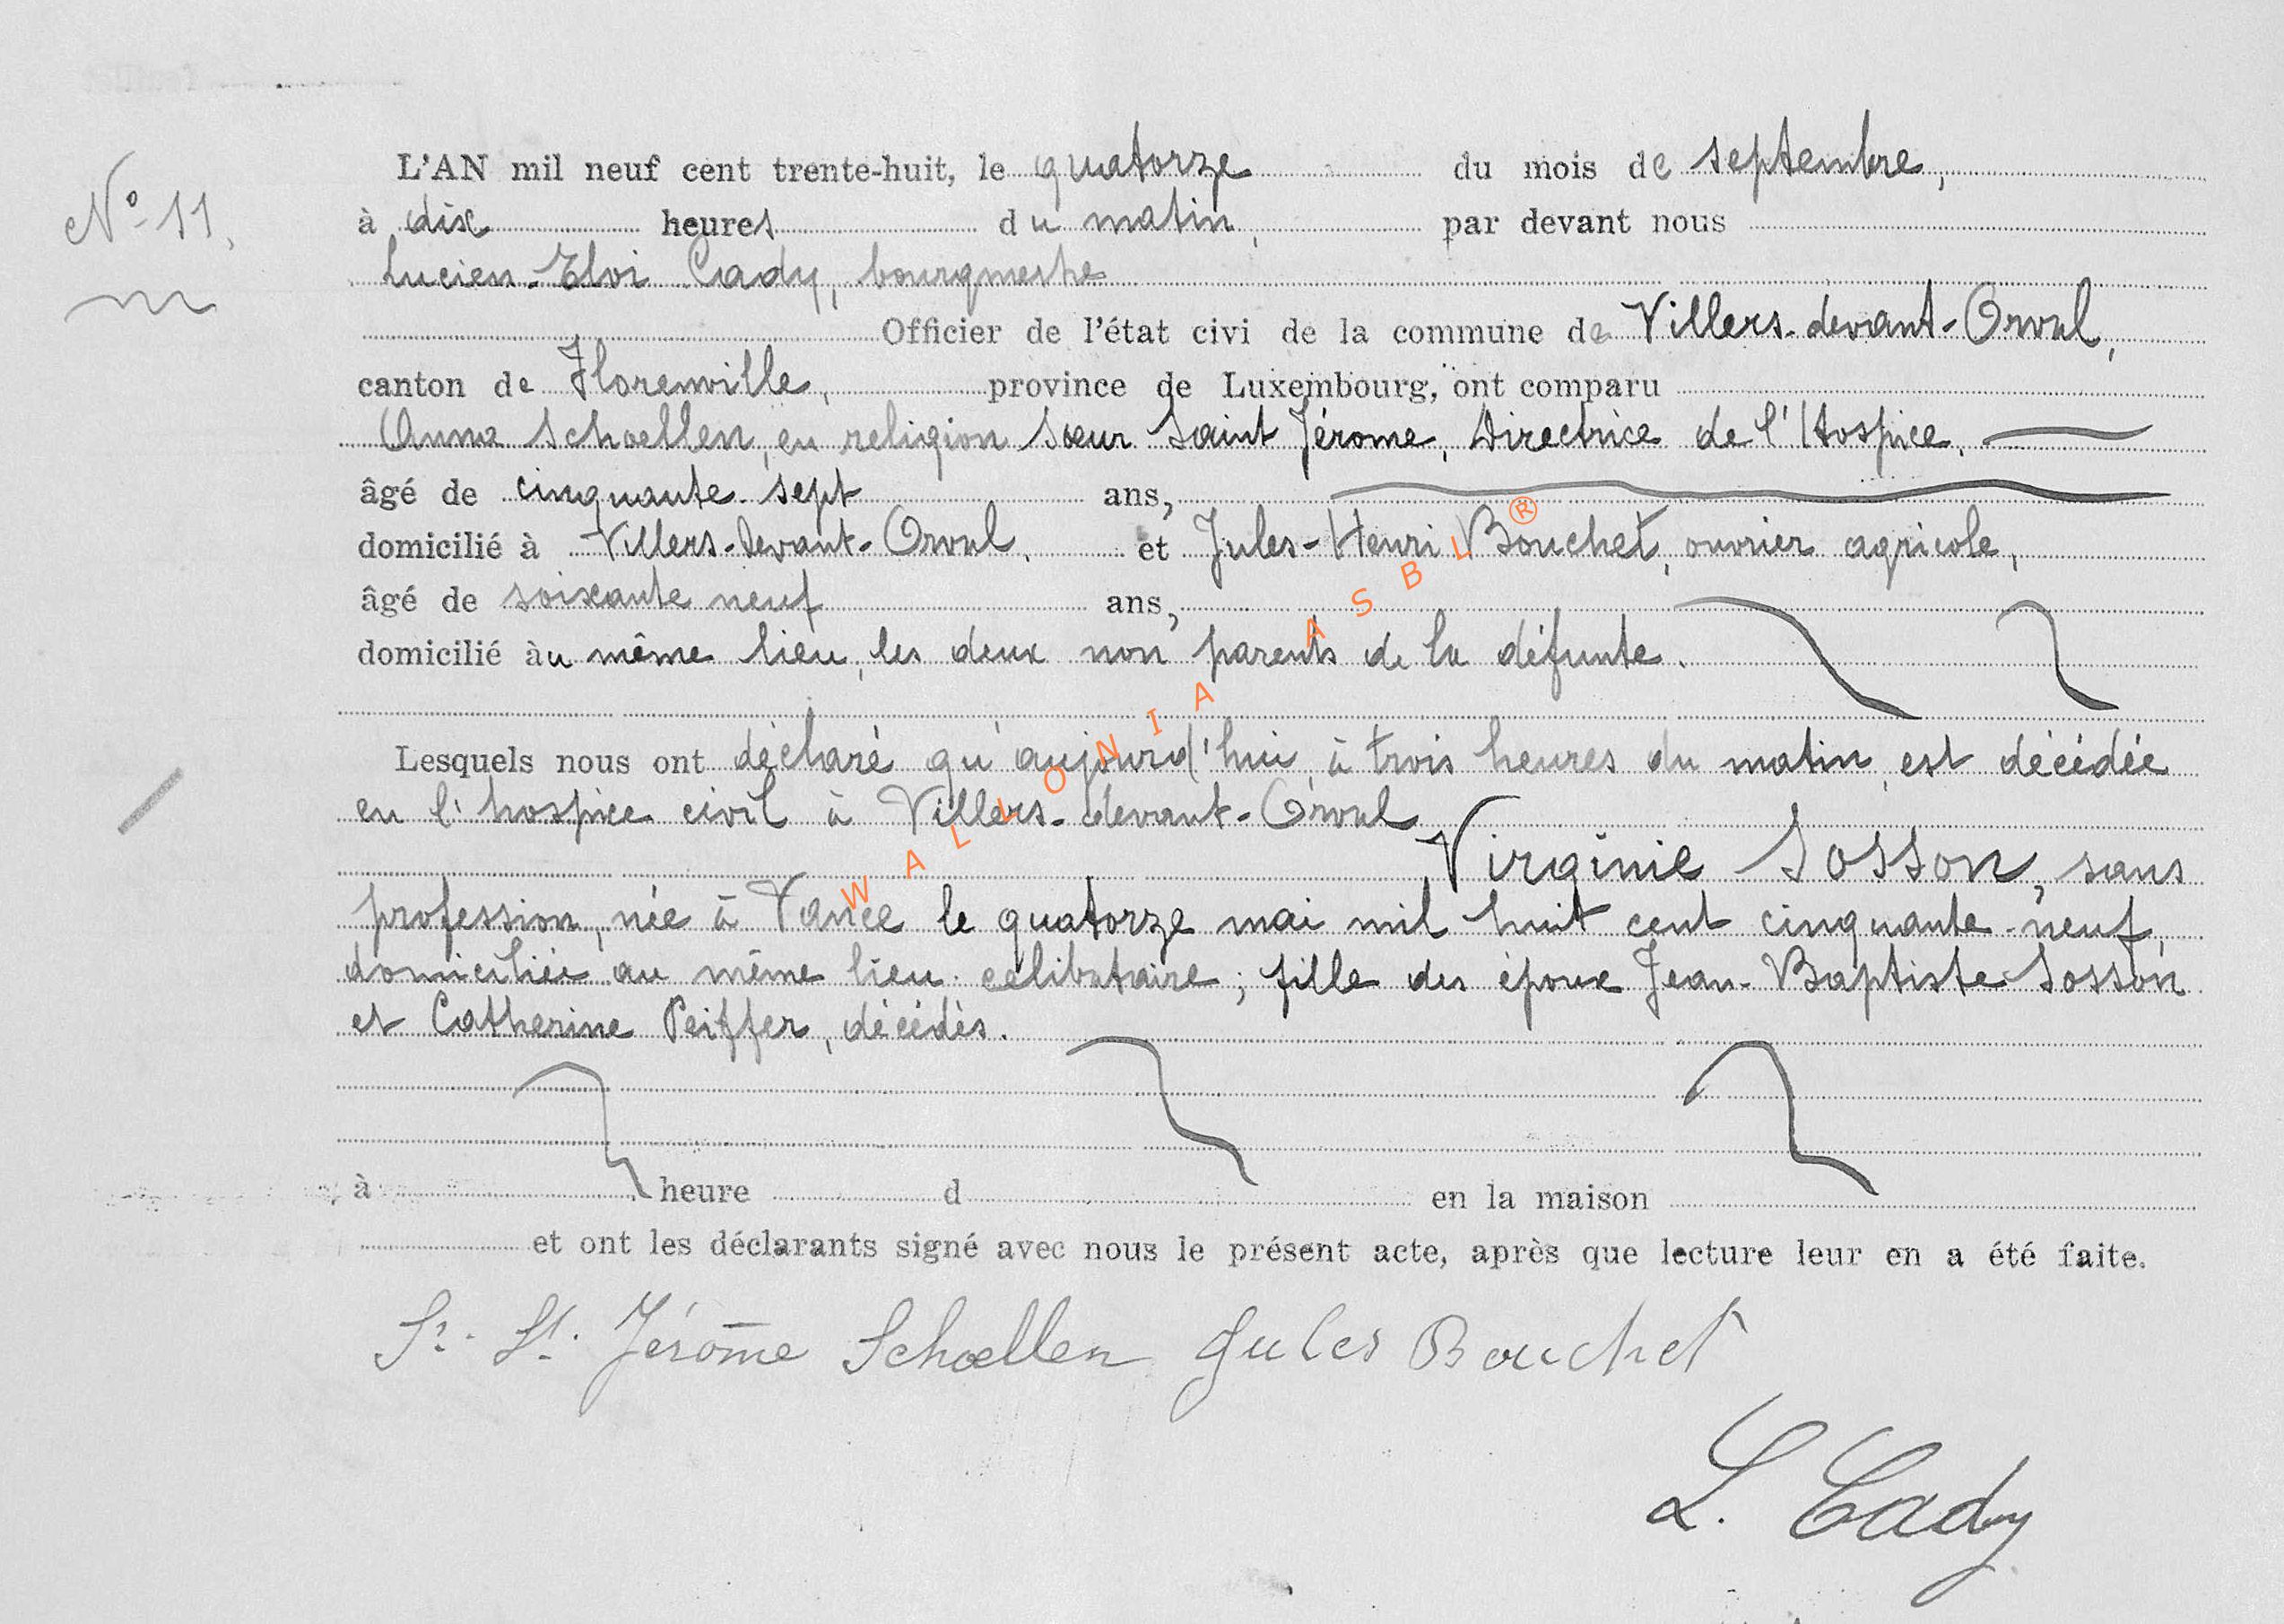 L'AN mil neuf cent trente-huit, le quatorze du mois de septembre,
N° 11.
à dix heures du matin, par devant nous
Lucien-Eloi Cady, bourgmestre
Officier de l'état civi de la commune de Villers-devant-Orval,
canton de Florenville, province de Luxembourg, ont comparu
Anna Schoellen, en religion Sœur Saint Jérome, Directrice de l'Hospice,
âgé de cinquante-sept ans,
domicilié à Villers-devant-Orval, et Jules-Henri Bouchet, ouvrier agricole,
âgé de soixante neuf ans,
domicilié àu même lieu, les deux non parents de la défunte.
Lesquels nous ont déclaré qu'aujourd'hui, à trois heures du matin, est décédée
en l'hospice civil à Villers-devant-Orval
Virginie Sosson, sans
profession, née à Vance le quatorze mai mil huit cent cinquante-neuf,
domiciliée au même lieu, célibataire; fille des époux Jean-Baptiste Sosson
et Catherine Peiffer, décédés.
à heure d en la maison
et ont les déclarants signé avec nous le présent acte, après que lecture leur en a été faite.
Sr. St. Jérôme Schoellen Jules Bouchet
L. Cady
WALLONIA ASBL ®